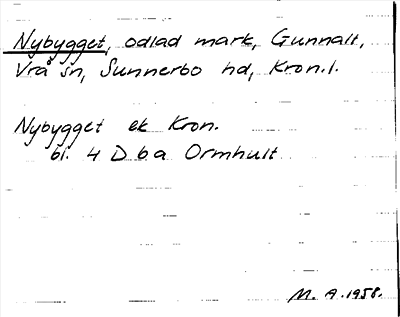 Nybygget, odlad mark, Gunnalt,
Vrå sn, Sunnerbo hd, Kron.l.
Nybygget ek Kron.
bl. 4 D b a Ormhult
M. A. 1958.